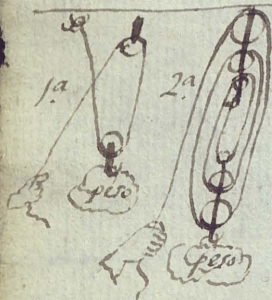 1.ª 2.ª
peso
peso